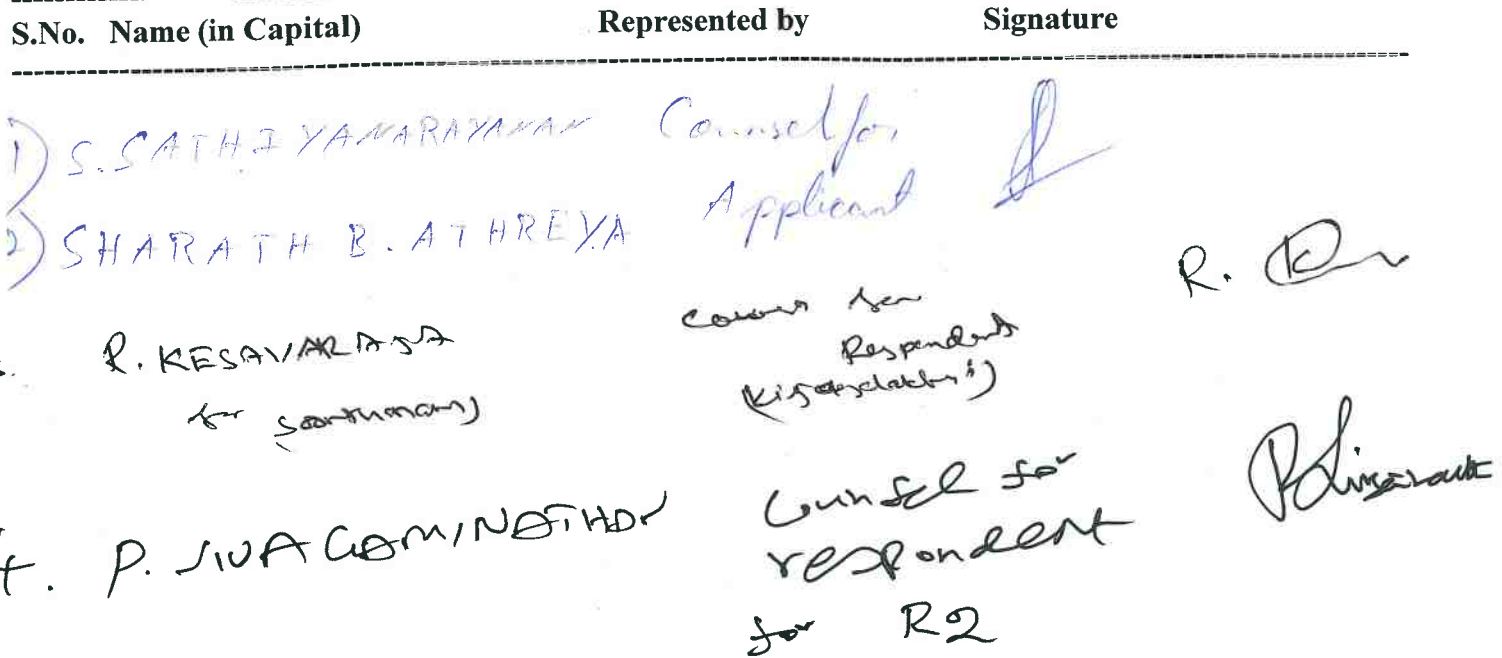 S.No. Name (in Capital) Represented by Signature
1) S. SATHIYANARAYANAN Counsel for
Applicant
2) SHARATH B. ATHREYA
R. KESAVARAJA Respondent
for
4. P. SIVAGAMINATHAN Counsel for
respondent
for R2